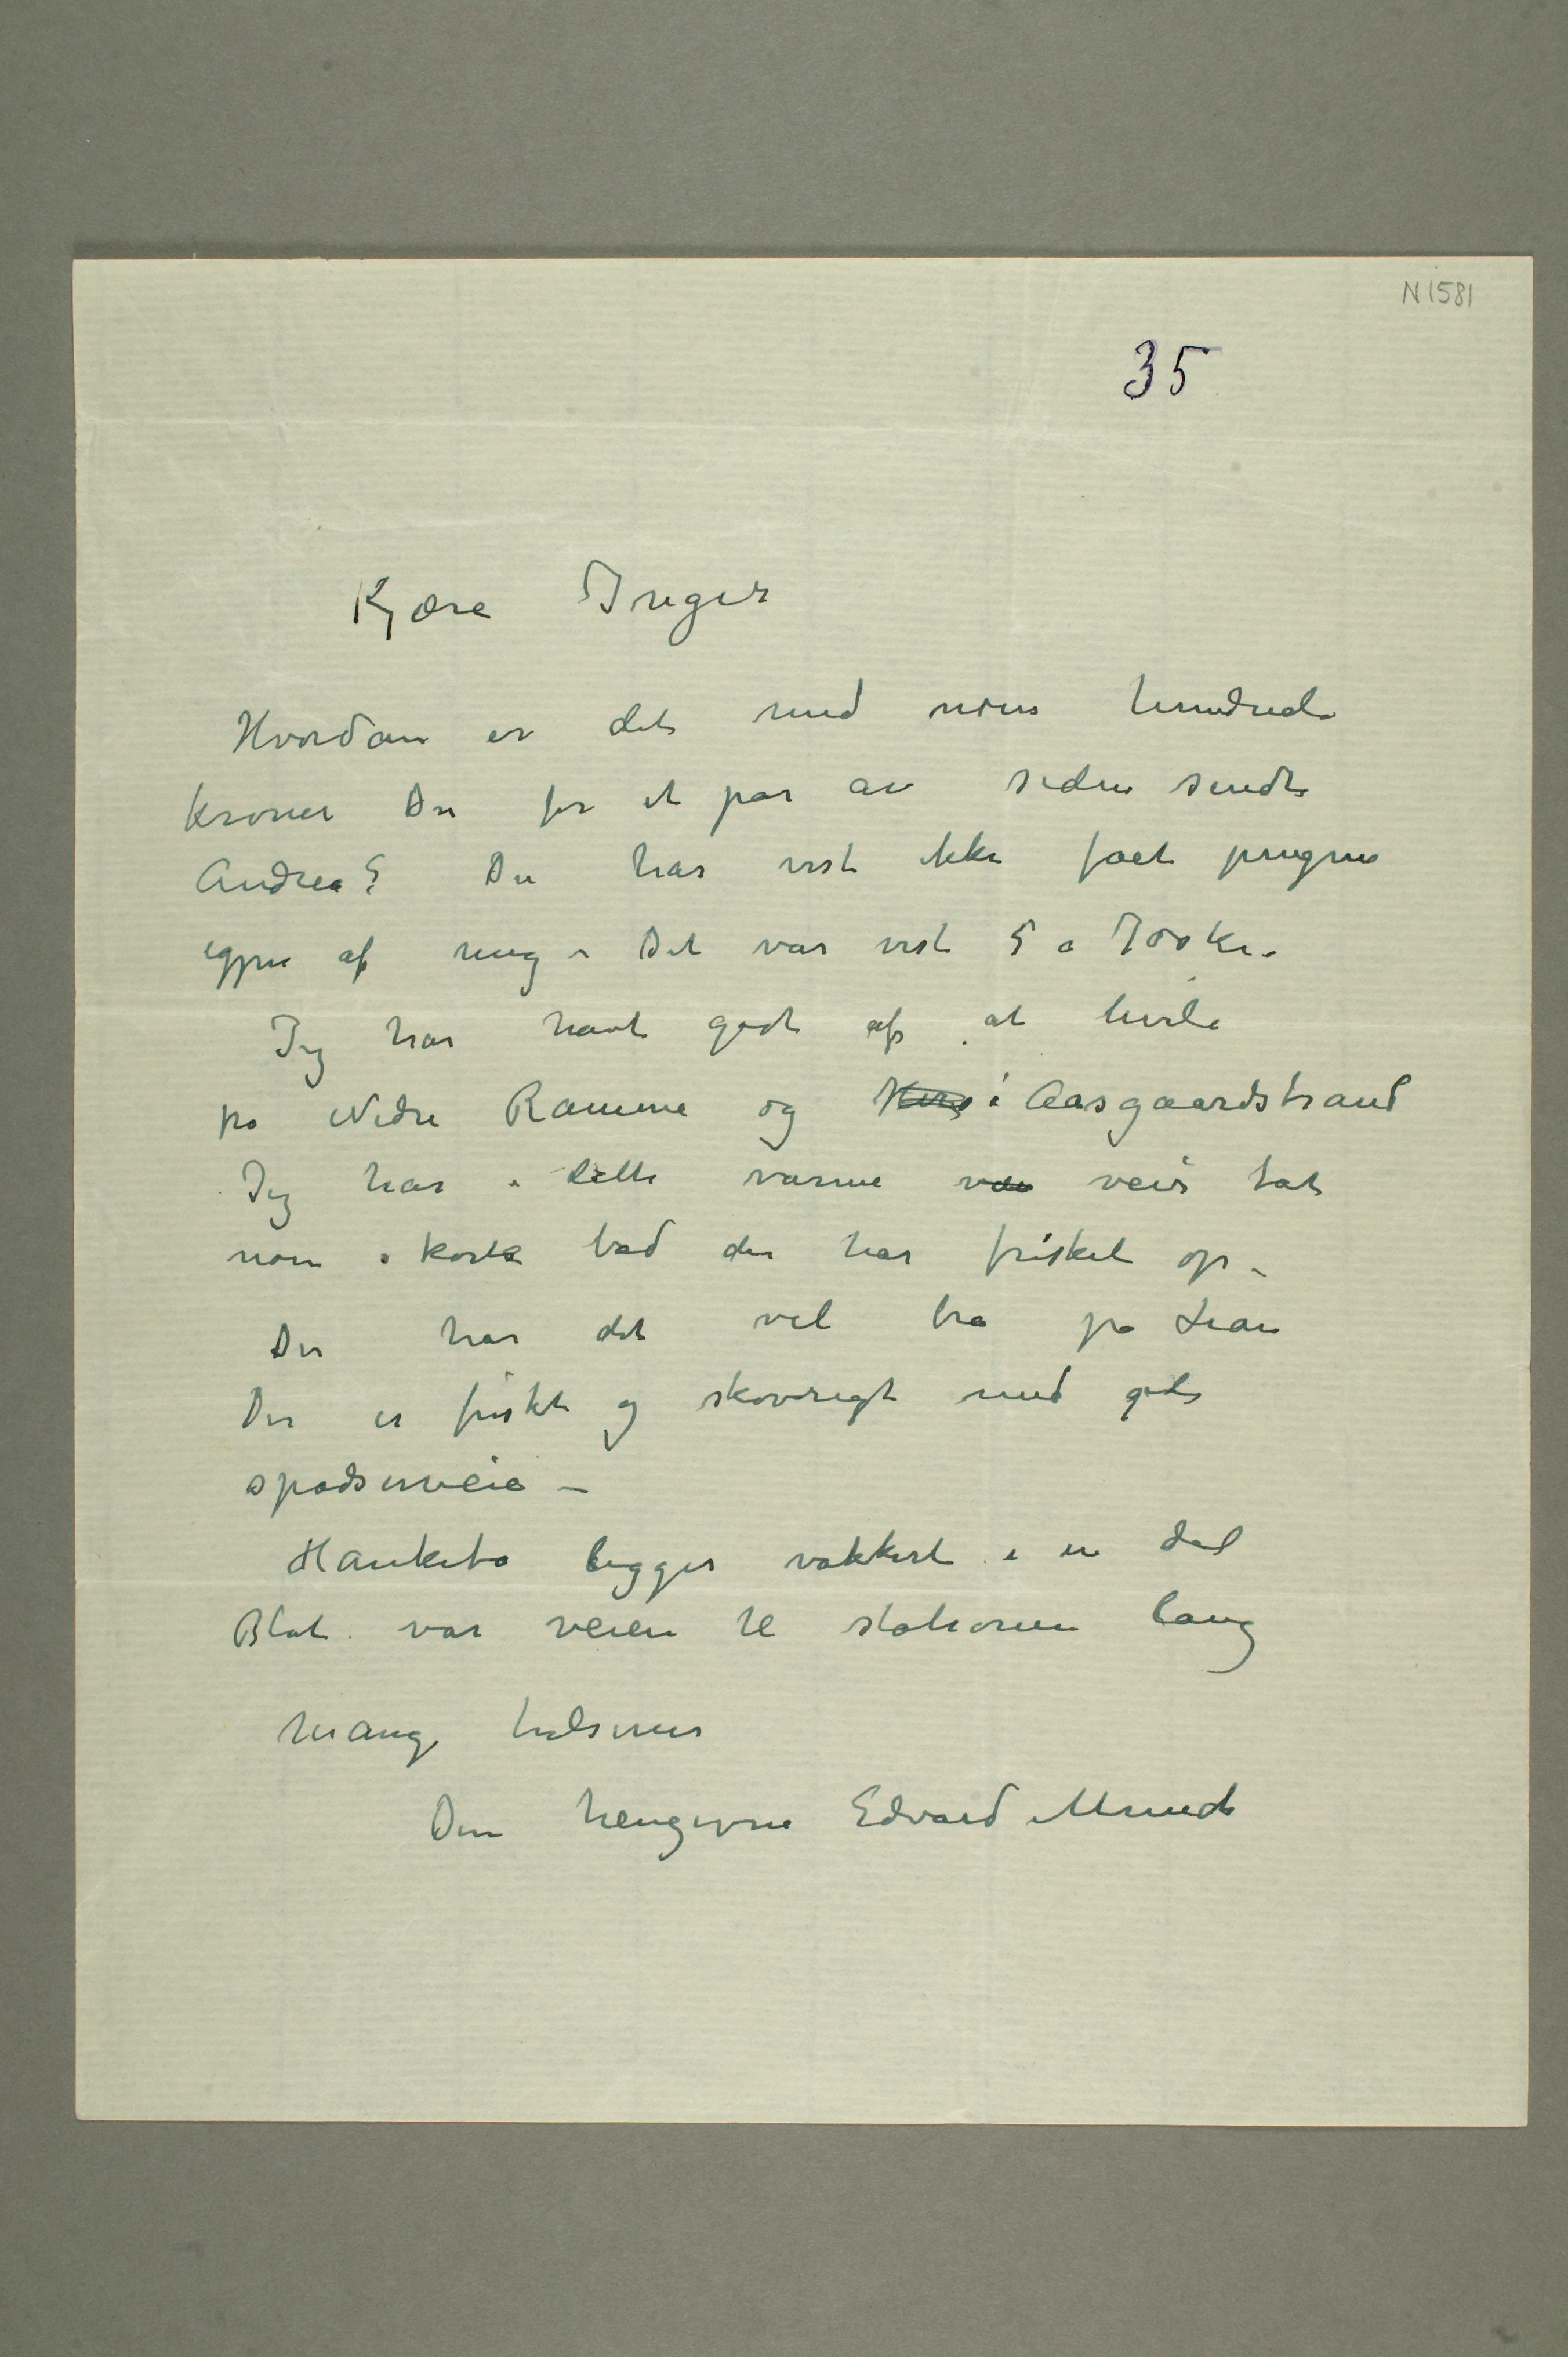 N 1581
35
Kjære Inger
Hvordan er det med noen hundrede
kroner Du for et par år siden sendte
Andrea? Du har vist ikke fået pengene
igjen af mig – Det var vist 5 a 700 kr.
Jeg har havt godt af at hvile
på Nedre Ramme og i Aasgaardstrand
Jeg har i dette varme veir tat
noen korte bad der har frisket op –
Du har det vel bra på Lian
Der er friskt og skovrigt med gode
spadserveie –
Hankebø ligger vakkert i en dal
Blot var veien til stationen lang
Mange hilsener
Din hengivne Edvard Munch